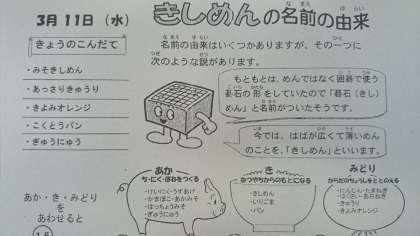 3月11日（水）
きしめんの名前の由来
きょうのこんだて
・みそきしめん
・あっさりきゅうり
・きよみオレンジ
・こくとうパン
・ぎゅうにゅう
名前の由来はいくつかありますが、その一つに
次のような説があります。
もともとは、めんではなく囲碁で使う
碁石の形をしていたので「碁石（きし）
めん」と名前がついたそうです。
今では、はばが広くて薄いめん
のことを、「きしめん」といいます。
あか・き・みどり
を
あわせると
あか
ち・にく・ほねをつくる
・けいにく・うずあげ
・かまぼこ・あかみそ
・はっちょうみそ
・ぎゅうにゅう
き
ねつやちからのもとになる
・きしめん
・いりごま
・パン
みどり
からだのちょうしをととのえる
・にんじん・たまねぎ
・はくさい・あおねぎ
・きゅうり
・きよみオレンジ